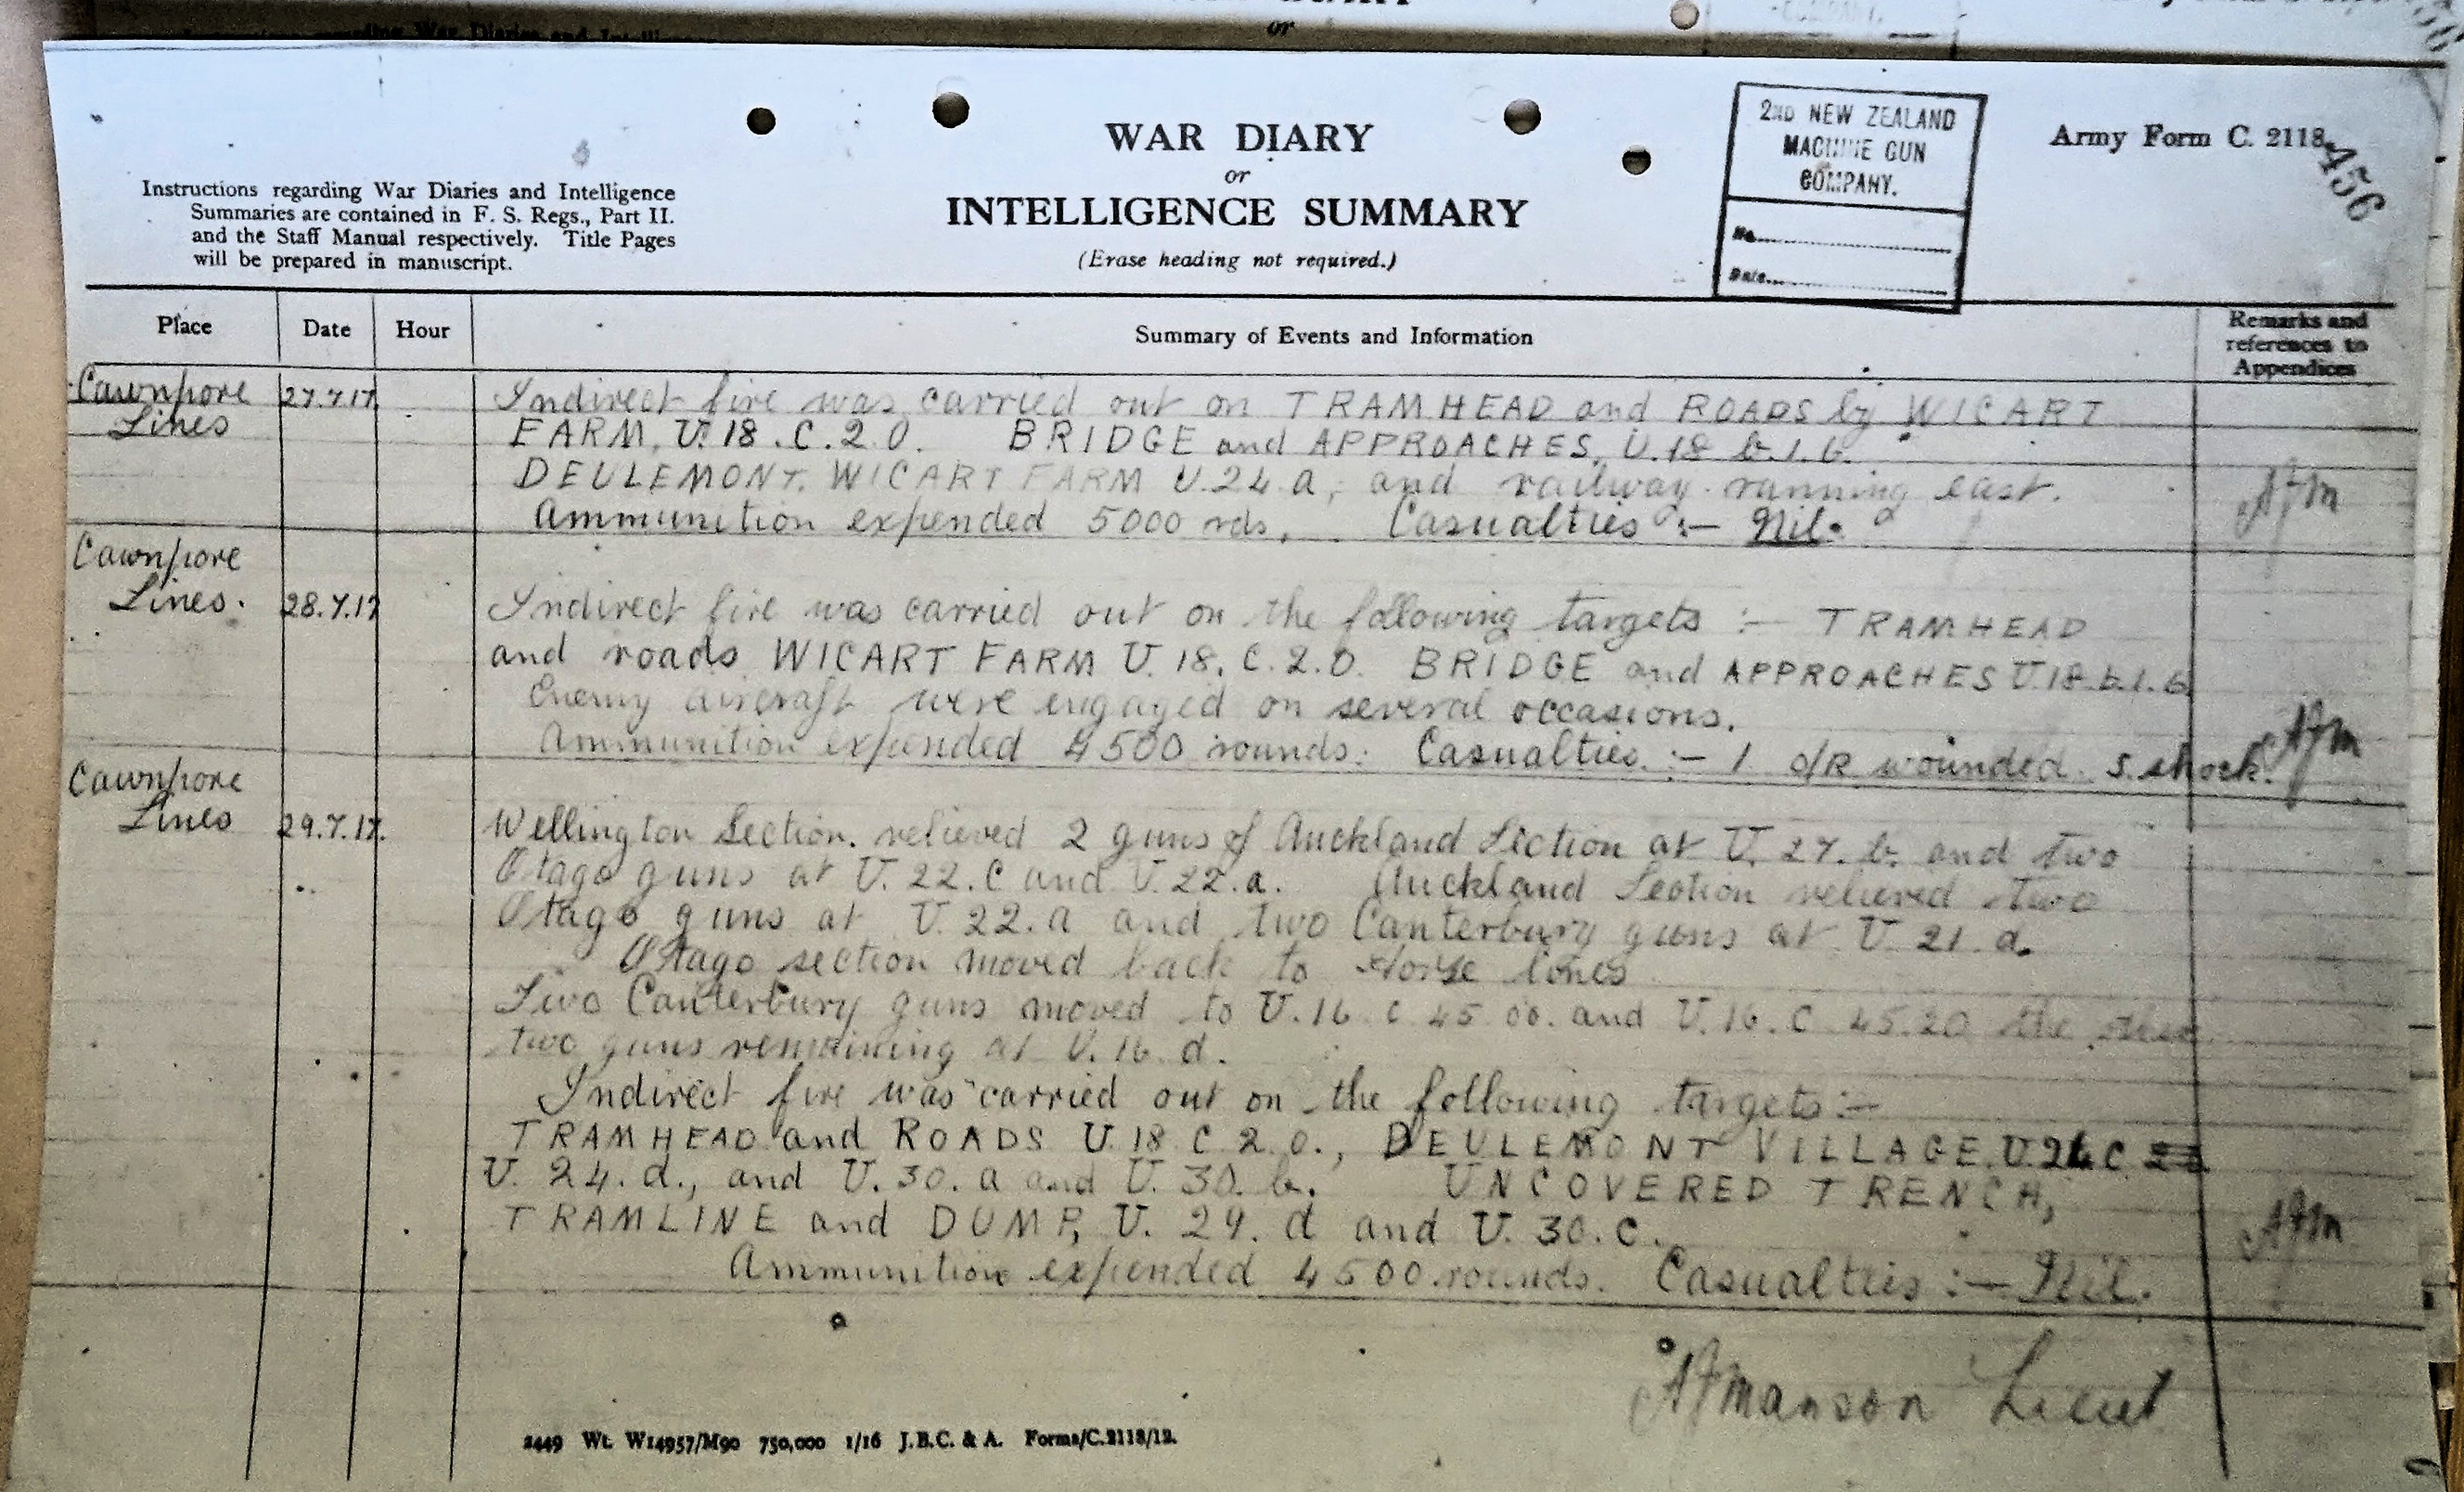 or
WAR DIARY
or
INTELLIGENCE SUMMARY
(Erase heading not required.)
Instructions regarding War Diaries and Intelligence
Summaries are contained in F. S. Regs., Part II.
and the Staff Manual respectively. Title Pages
will be prepared in manuscript.
2ND NEW ZEALAND
MACHINE GUN
COMPANY.
No.
Date
Army Form C. 2118.
456
Place Date Hour Summary of Events and Information Remarks and references to Appendices
Cawnpore 27.7.17 Indirect fire was carried out on TRAMHEAD and ROADS by WICART
Lines FARM, U.18.C.2.0. BRIDGE and APPROACHES, U.18 b.1.6.
DEULEMONT. WICART FARM U.24.a, and railway running east. AJM
Ammunition expended 5000 rds. Casualties :- Nil.
Cawnpore
Lines. 28.7.17 Indirect fire was carried out on the following targets :- TRAMHEAD
and roads WICART FARM U.18.C.2.0. BRIDGE and APPROACHES U.18 b.1.6
Enemy aircraft were engaged on several occasions.
Ammunition expended 4500 rounds. Casualties :- 1 O/R wounded. S. shock. AJM
Cawnpore
Lines 29.7.17. Wellington Section. relieved 2 guns of Auckland Section at U.27.b. and two
Otago guns at U.22.C and U.22.a. Auckland Section relieved two
Otago guns at U.22.a and two Canterbury guns at U 21 d.
Otago section moved back to Horse lines
Two Canterbury guns moved to U.16 c 45 00. and U.16.C 45.20 the other
two guns remaining at U.16.d.
Indirect fire was carried out on the following targets :-
TRAMHEAD and ROADS U 18 C 2.0., DEULEMONT VILLAGE. U.24 C
U.24.d., and U.30.a and U.30.b. UNCOVERED TRENCH,
TRAMLINE and DUMP, U.29.d and U.30.C. AJM
Ammunition expended 4500 rounds. Casualties :- Nil.
AJManson Lieut
2449 Wt. W14957/M90 750,000 1/16 J.B.C. & A. Forms/C.2118/12.